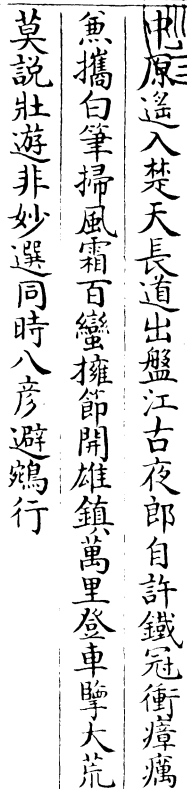 中原遥入楚天長道出盤江古夜郎自許鐵冠衝瘴癘
兼攜白筆掃風霜百蠻擁節開雄鎮萬里登車擥大荒
莫說壯遊非妙選同時八彥避鵷行